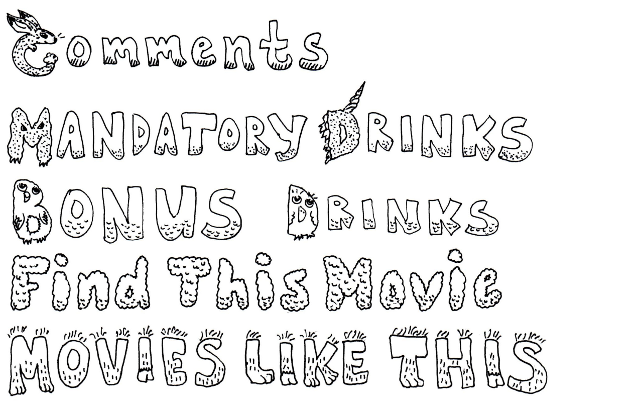 Comments
MANDATORY DRINKS
BONUS DRINKS
Find This Movie
MOVIES LIKE THIS